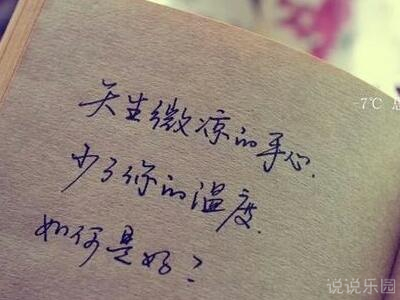 天生微凉的手心.
少了你的温度.
如何是好?
-7℃
说说乐园